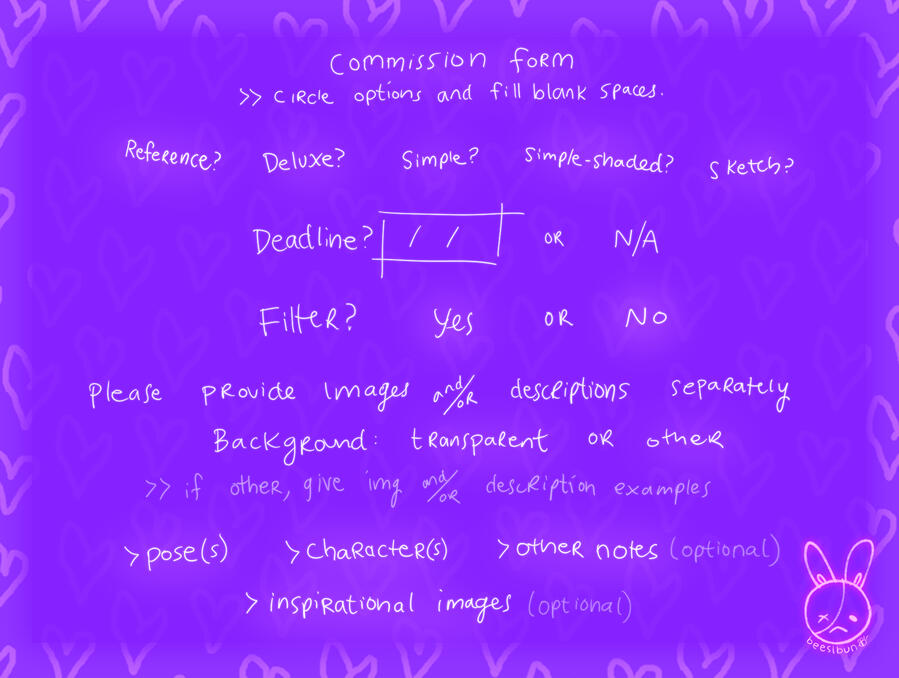 Commission form
>> circle options and fill blank spaces.
Reference? Deluxe? Simple? Simple-shaded? Sketch?
Deadline? / / or N/A
Filter? Yes or No
Please provide images and/or descriptions separately
Background: transparent or other
>> if other, give img and/or description examples
> pose(s) > character(s) > other notes (optional)
> inspirational images (optional)
beeslbun